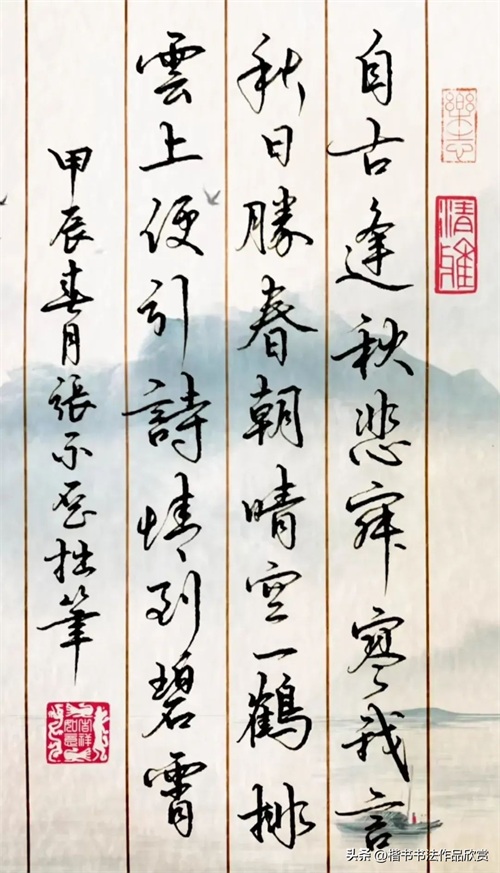 樂志
清雅
自古逢秋悲寂寥我言
秋日勝春朝晴空一鶴排
雲上便引詩情到碧霄
甲辰春月張不拙筆
头条 @楷书书法作品欣赏